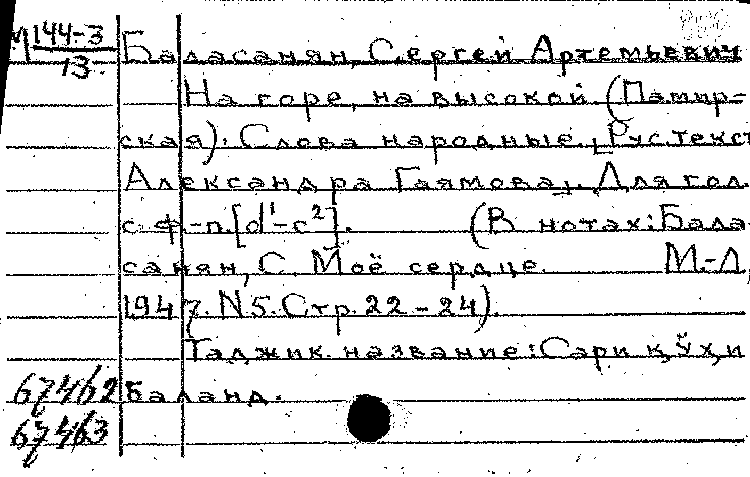 М 144-3
13.
Баласанян, Сергей Артемьевич
На горе, на высокой (Памир-
ская). Слова народные. [Рус. текст
Александра Гаямова]. Для гол.
с ф-п. [d¹-c²]. (В нотах: Бала
санян, С. Моё сердце. М.-Л,
1947. N5. Стр. 22-24).
Таджик. название: Сари қӯҳи
67462 Баланд.
67463